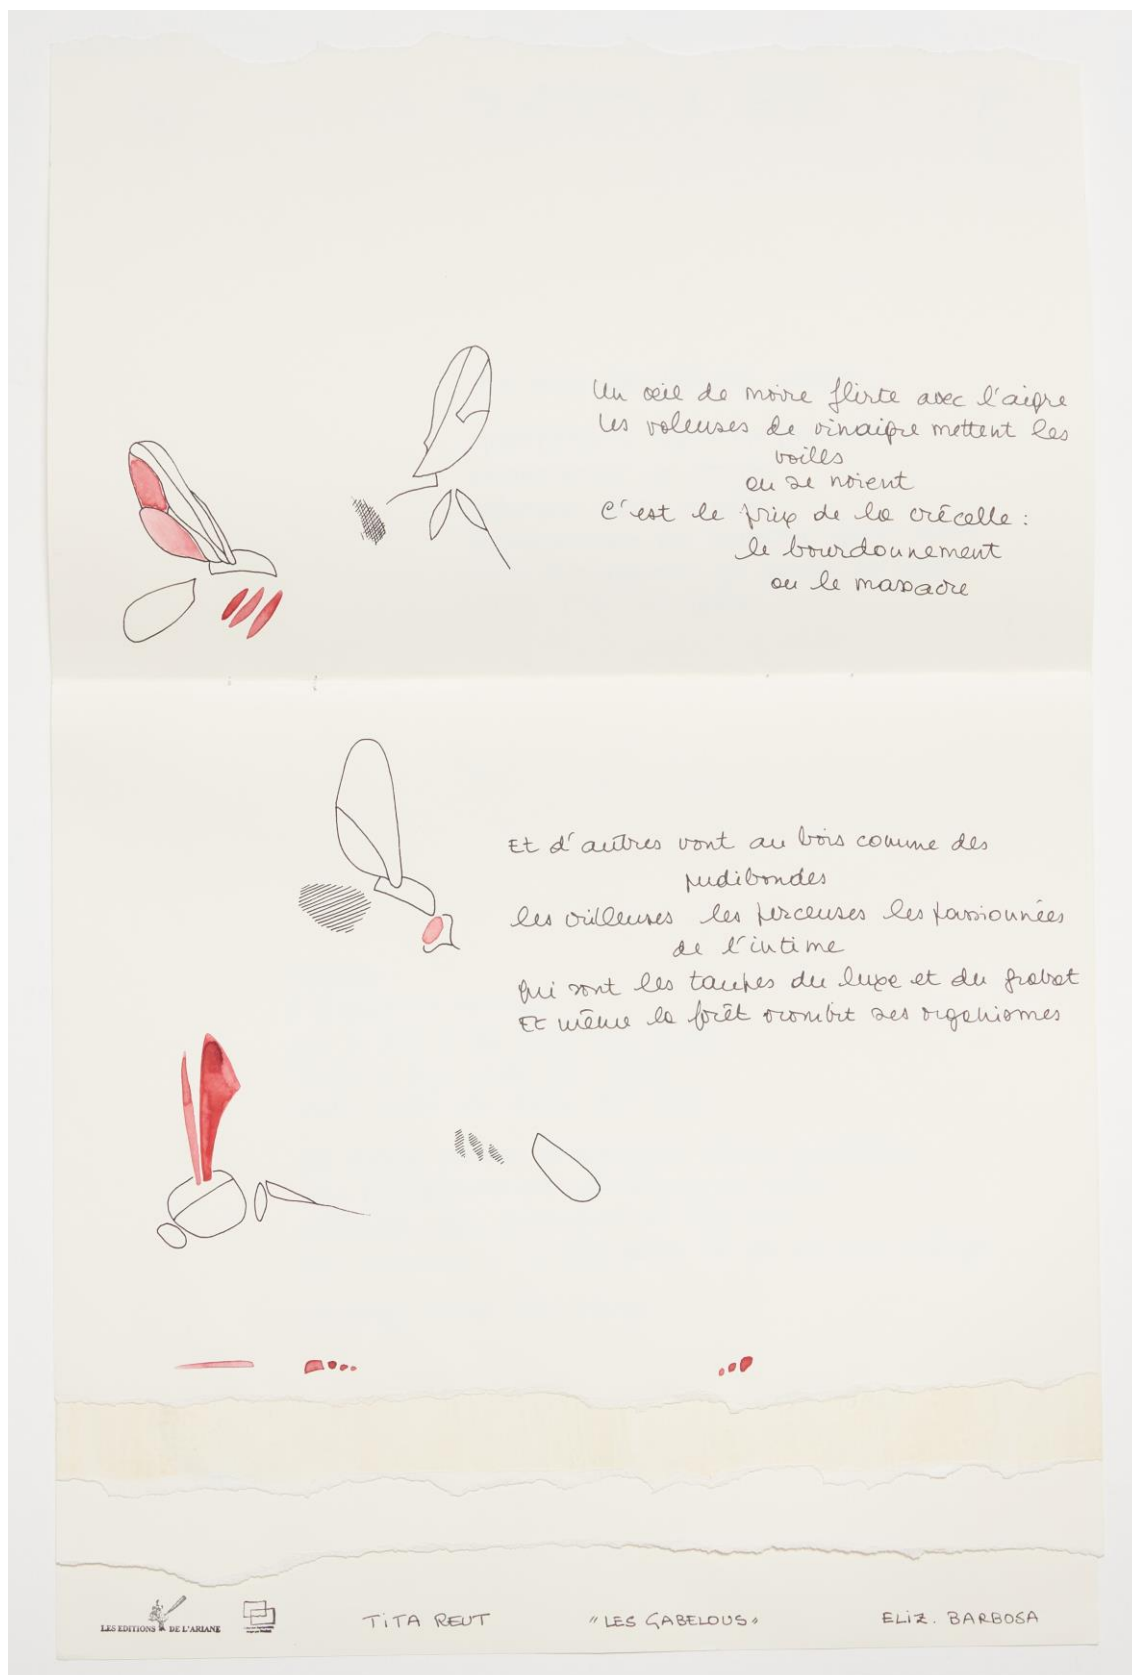 Un œil de moire flirte avec l'aigre
Les voleuses de vinaigre mettent les
voiles
ou se noient
C'est le prix de la crécelle :
le bourdonnement
ou le massacre
Et d'autres vont au bois comme des
pudibondes
les vrilleuses les perceuses les passionnées
de l'intime
qui sont les taupes du luxe et du grabat
Et même la forêt vrombit ses organismes
LES EDITIONS DE L'ARIANE
TiTA REUT
"LES GABELOUS"
ELIZ. BARBOSA